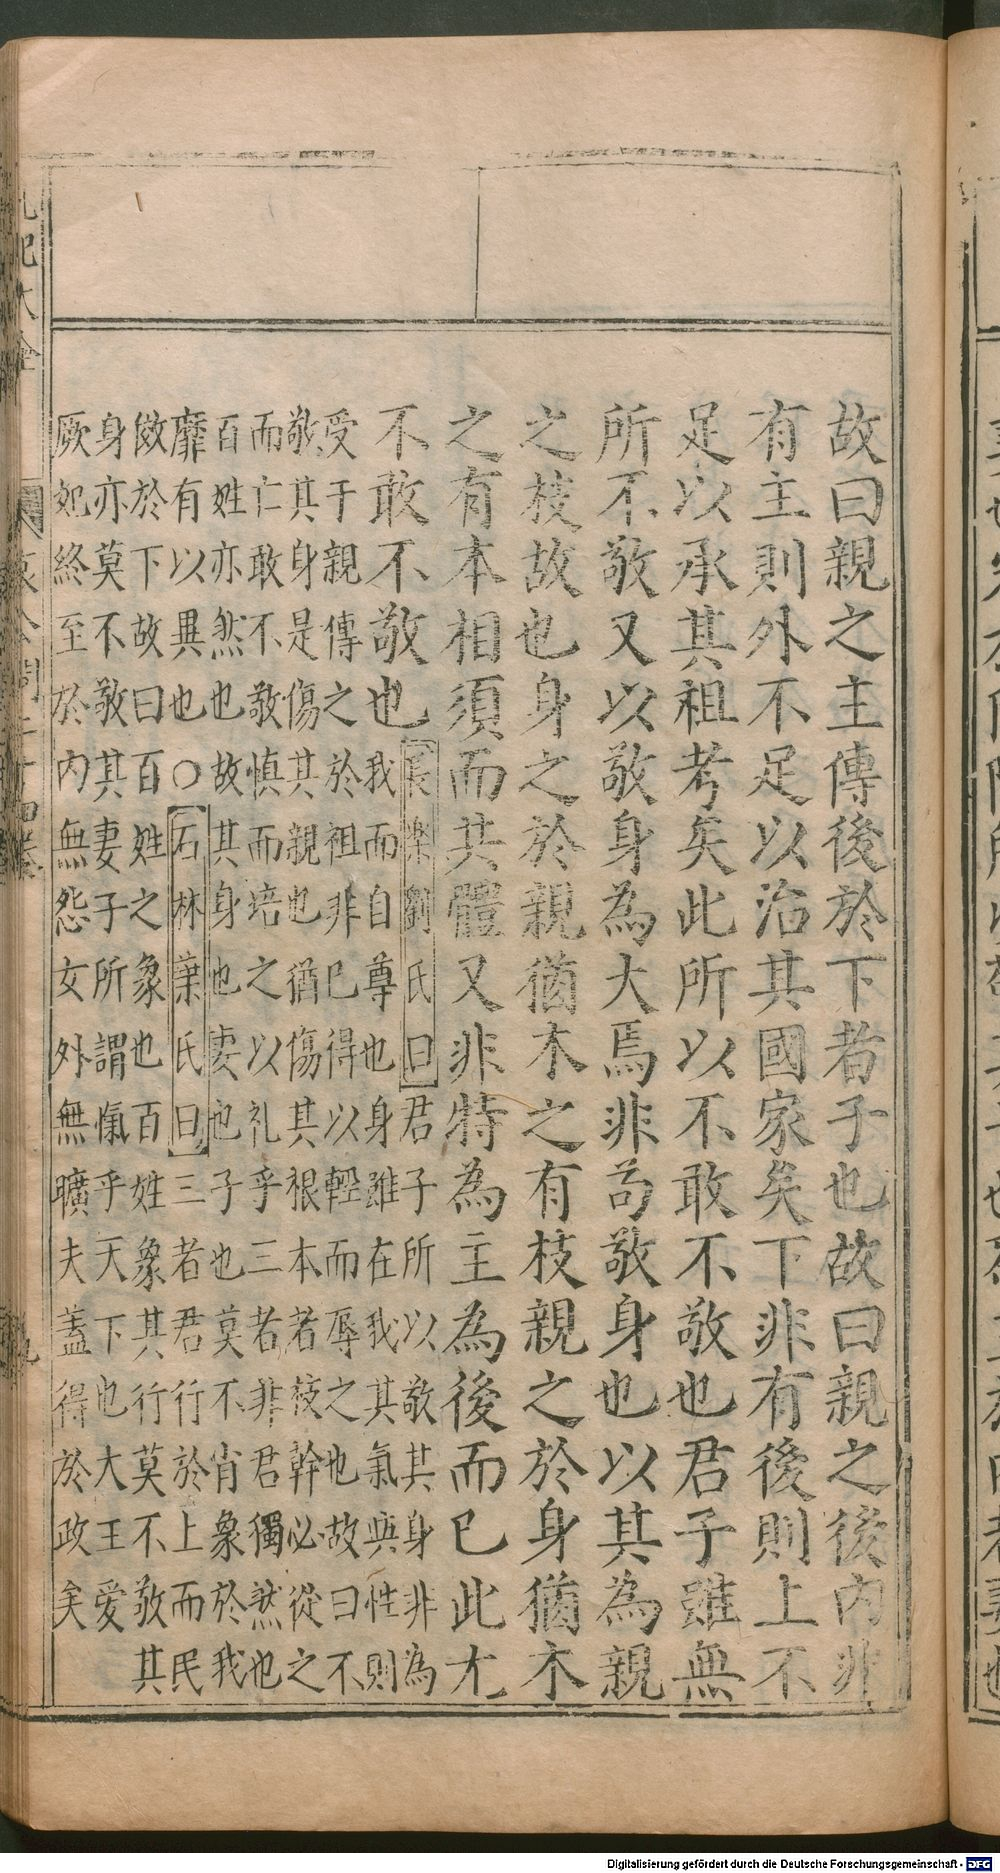 故曰親之主傳後於下者子也故曰親之後內非
有主則外不足以治其國家矣下非有後則上不
足以承其祖考矣此所以不敢不敬也君子雖無
所不敬又以敬身為大焉非苟敬身也以其為親
之枝故也身之於親猶木之有枝親之於身猶木
之有本相須而共體又非特為主為後而已此尤
不敢不敬也
長樂劉氏曰君子所以敬其身非為
我而自尊也身雖在我其氣與性則
受于親傳之於祖非已得以輕而辱之也故曰不
敬其身是傷其親也猶傷其根本者枝幹必從之
而亡敢不敬慎而培之以礼乎三者非君獨然也
百姓亦然也故其身也妻也子也莫不肖象於我
靡有以異也○石林葉氏曰三者君行於上而民
傚於下故曰百姓之象也百姓象其行莫不敬其
身亦莫不敬其妻子所謂愾乎天下也大王愛
厥妃終至於內無怨女外無曠夫蓋得於政矣
Digitalisierung gefördert durch die Deutsche Forschungsgemeinschaft - DFG